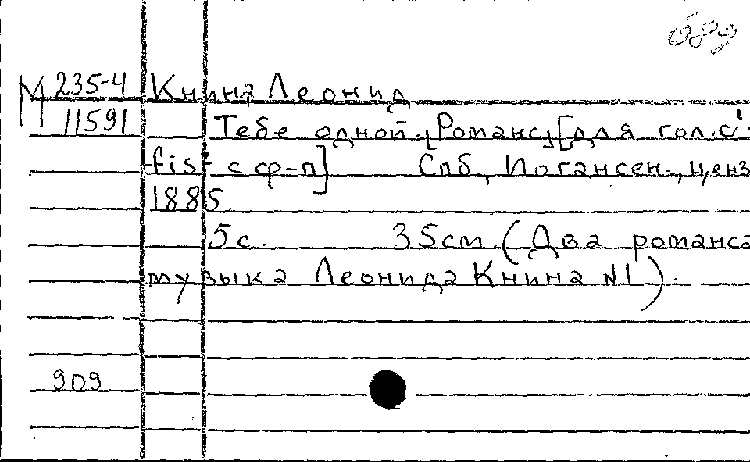 М 235-4 Книна Леонид
11591 Тебе одной. [Романс] [для гол. c¹-
fis² с ф-п] Спб., Иогансен, ценз.
1885
5 с. 35 см. (Два романса
музыка Леонида Книна №1).
909